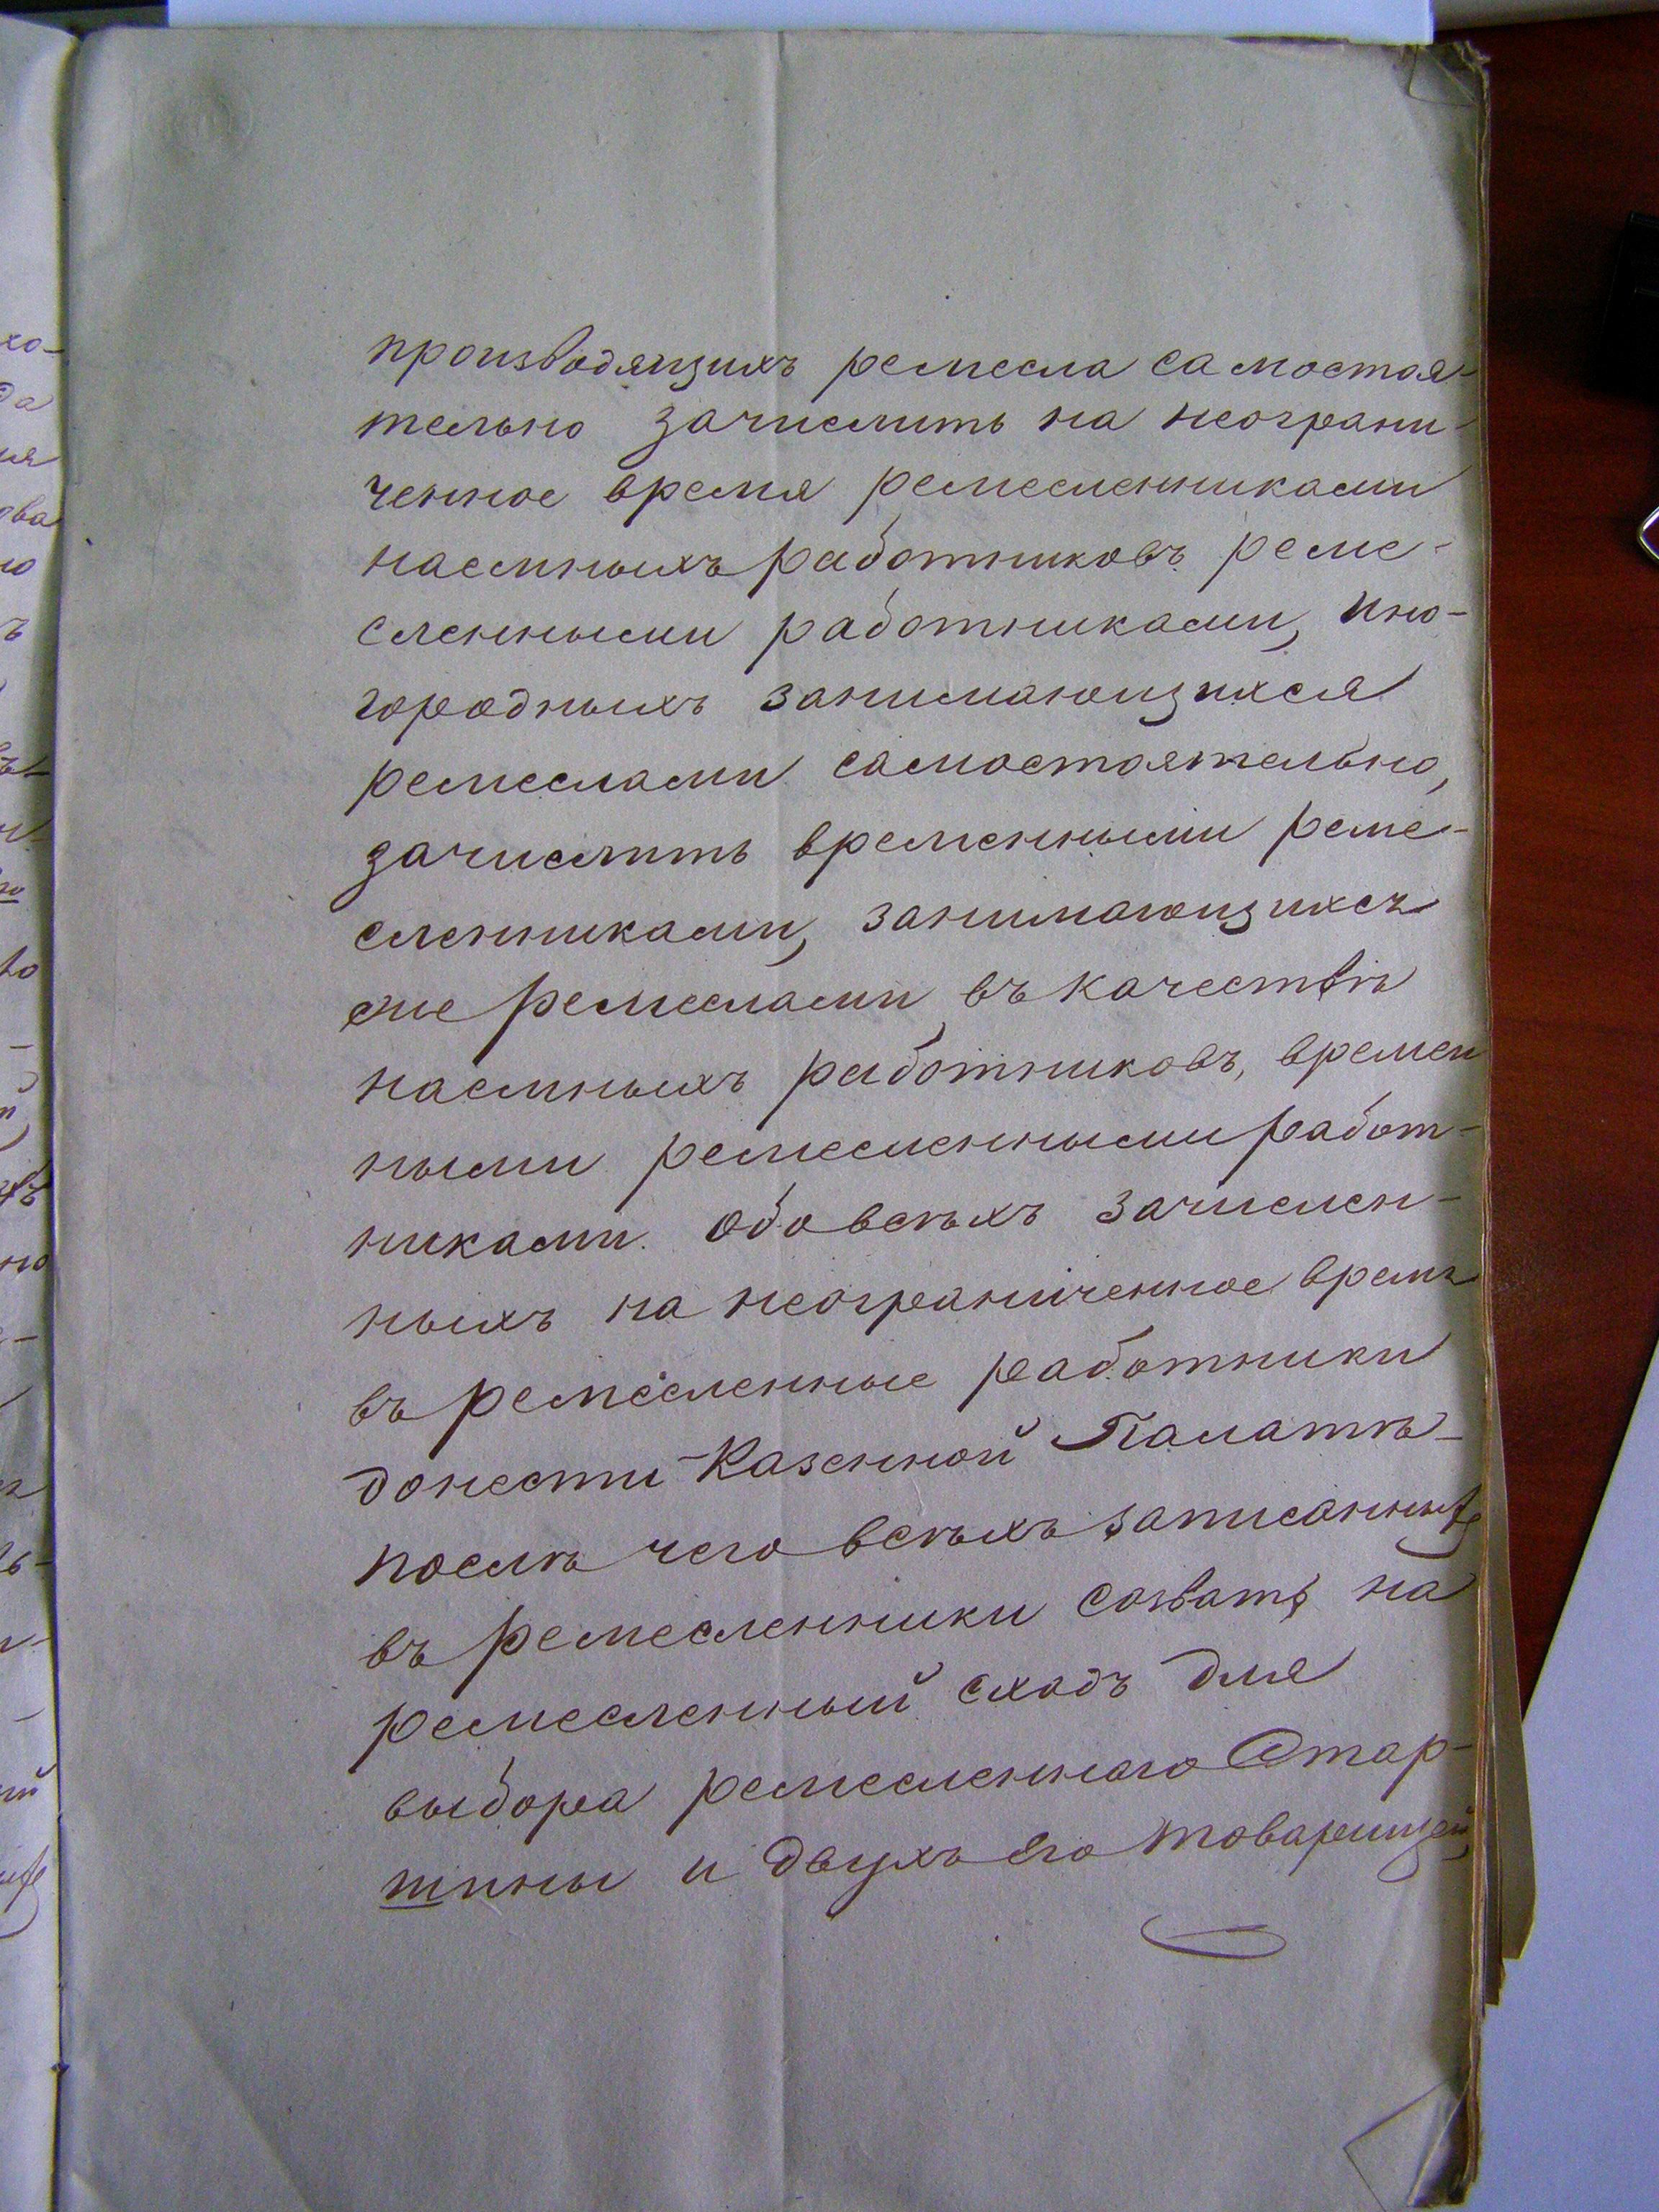 производящихъ ремесла самостоя-
тельно зачислить на неограни-
ченное время ремесленниками
наемныхъ работниковъ реме-
сленными работниками, ино-
городныхъ занимающихся
ремеслами самостоятельно,
зачислить временными реме-
сленниками, занимающихся
же ремеслами въ качествѣ
наемныхъ работниковъ, времен
ными ремесленными работ-
никами. Обо всѣхъ зачислен-
ныхъ на неограниченное время
въ ремесленные работники
донести Казенной Палатѣ
послѣ чего всѣхъ записанныхъ
въ ремесленники созвать на
ремесленный сходъ для
выбора ремесленнаго Стар-
шины и двухъ его товарищей,